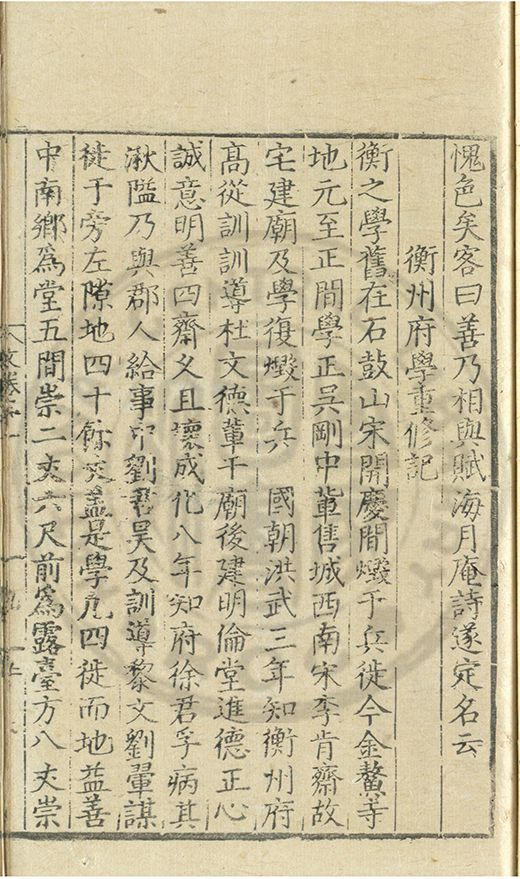 愧色矣客曰善乃相與賦海月庵詩遂定名云
衡州府學重修記
衡之學舊在石鼓山宋開慶間燬于兵徙今金鰲寺
地元至正間學正吳剛中軰售城西南宋李肯齋故
宅建廟及學復燬于兵　國朝洪武三年知衡州府
髙從訓訓導杜文德軰于廟後建明倫堂進德正心
誠意明善四齋久且壞成化八年知府徐君孚病其
湫隘乃與郡人給事中劉君昊及訓導黎文劉翬謀
徙于旁左隙地四十餘丈盖是學凢四徙而地益善
中南鄉爲堂五間崇二丈六尺前爲露臺方八丈崇